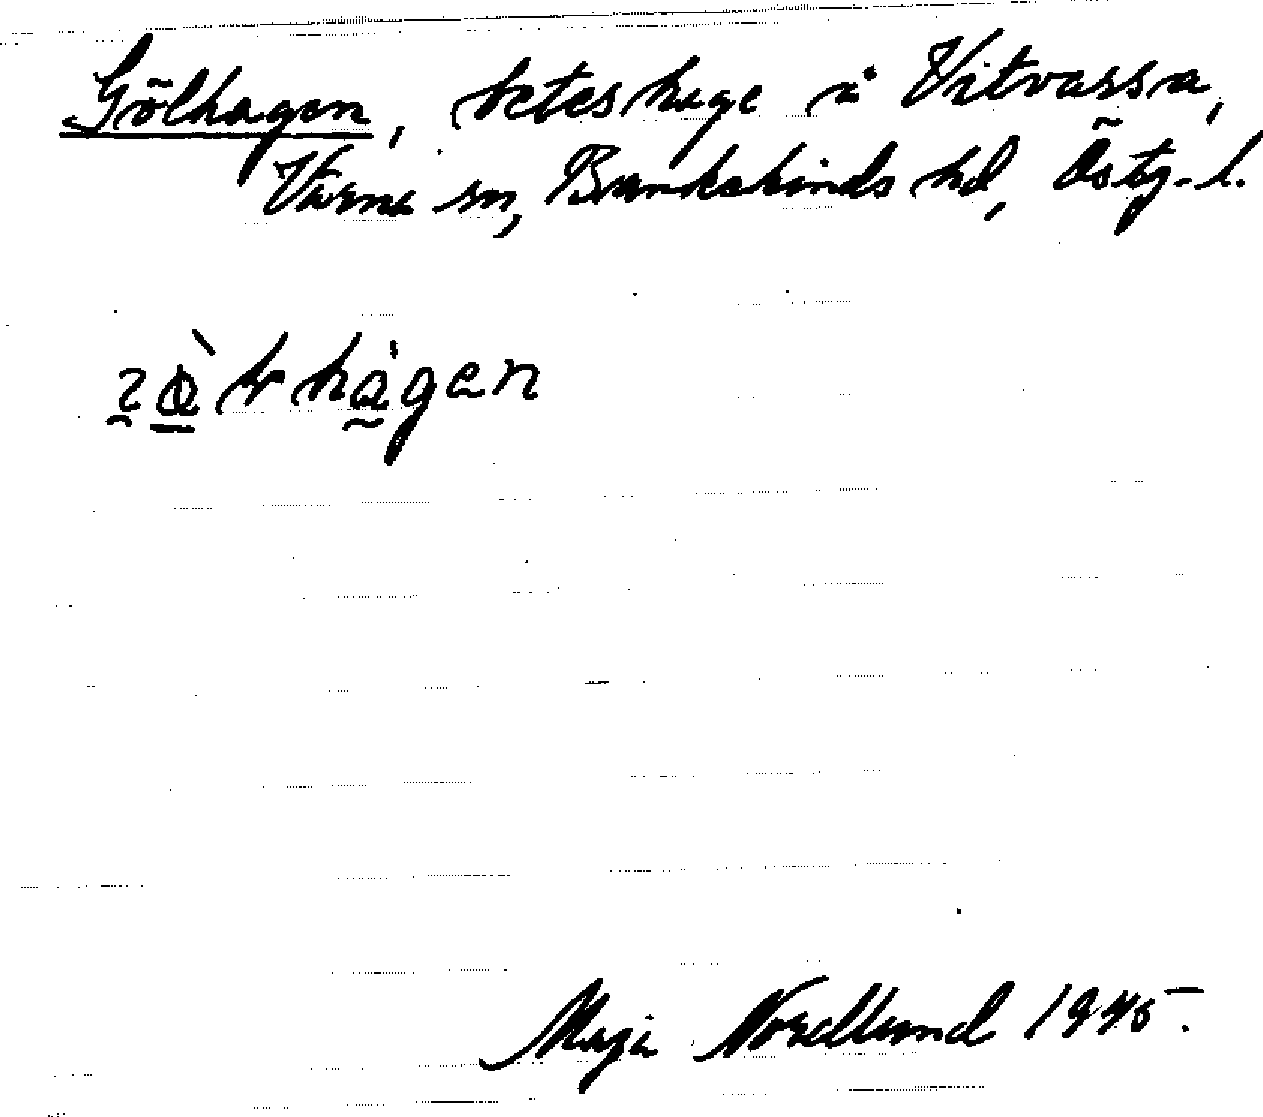 Gölhagen, beteshage i Vitvassa,
Värna sn, Bankekinds hd, Östg. l.
hågen
Maja Nordlund 1945.